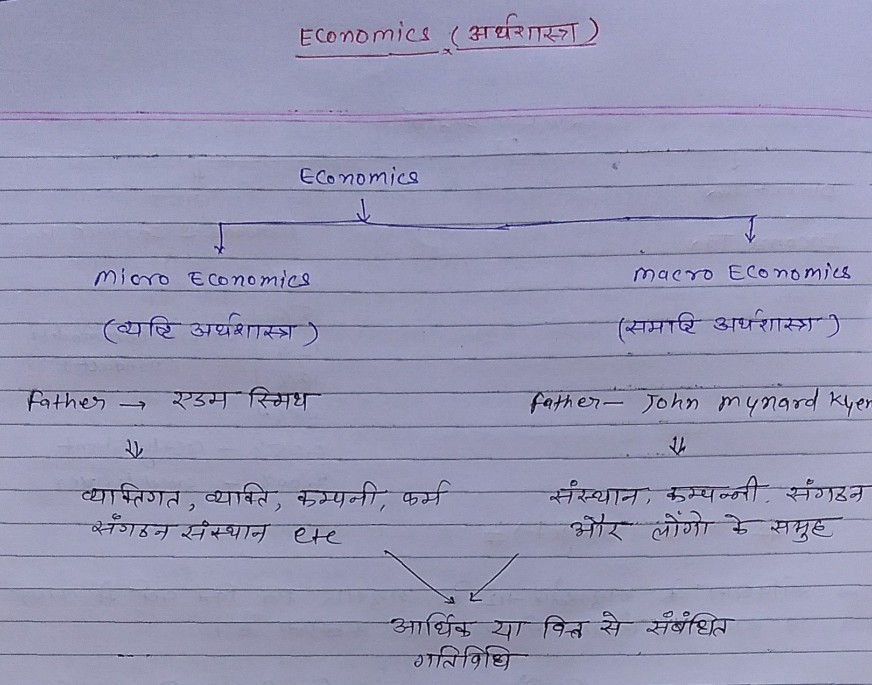 Economics (अर्थशास्त्र)
Economics
Micro Economics Macro Economics
(व्यष्टि अर्थशास्त्र) (समाष्टि अर्थशास्त्र)
Father → एडम स्मिथ Father – John Mynard Kyen
व्यक्तिगत, व्यक्ति, कम्पनी, फर्म संस्थान, कम्पन्नी, संगठन
संगठन संस्थान etc और लोंगो के समुह
आर्थिक या वित्त से संबंधित
गतिविधि